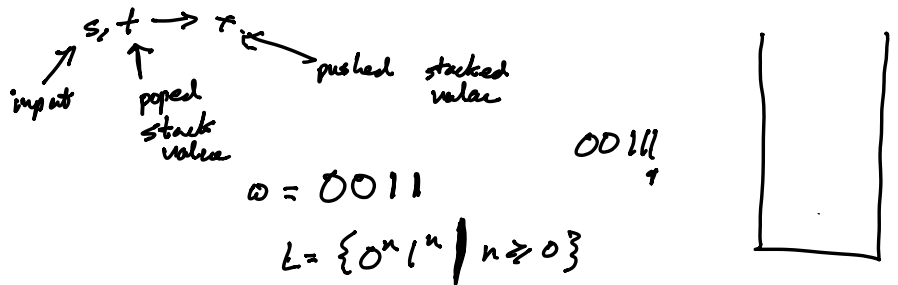 s, t → r
input
poped stack value
pushed stacked value
00111
ω = 0011
L = {0ⁿ 1ⁿ | n ≥ 0}